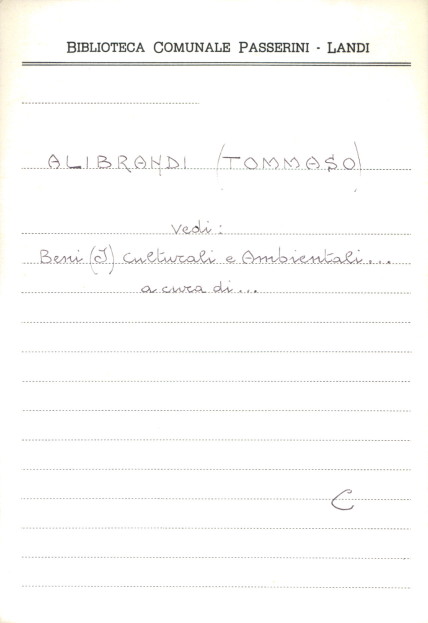 BIBLIOTECA COMUNALE PASSERINI - LANDI
ALIBRANDI (TOMMASO)
vedi:
Beni (I) Culturali e Ambientali...
a cura di...
C